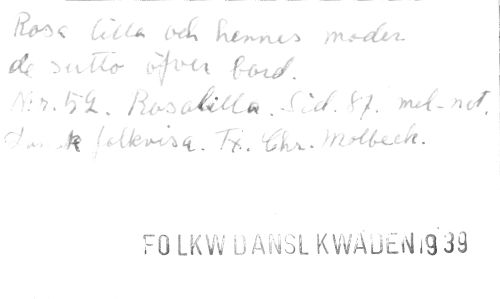 Rosa lilla och hennes moder
de sutto öfver bord.
N:r. 52. Rosalilla. Sid. 87. mel-not.
folkvisa. Tx. Chr. Molbeck.
FOLKWDANSLKWÄDEN1939